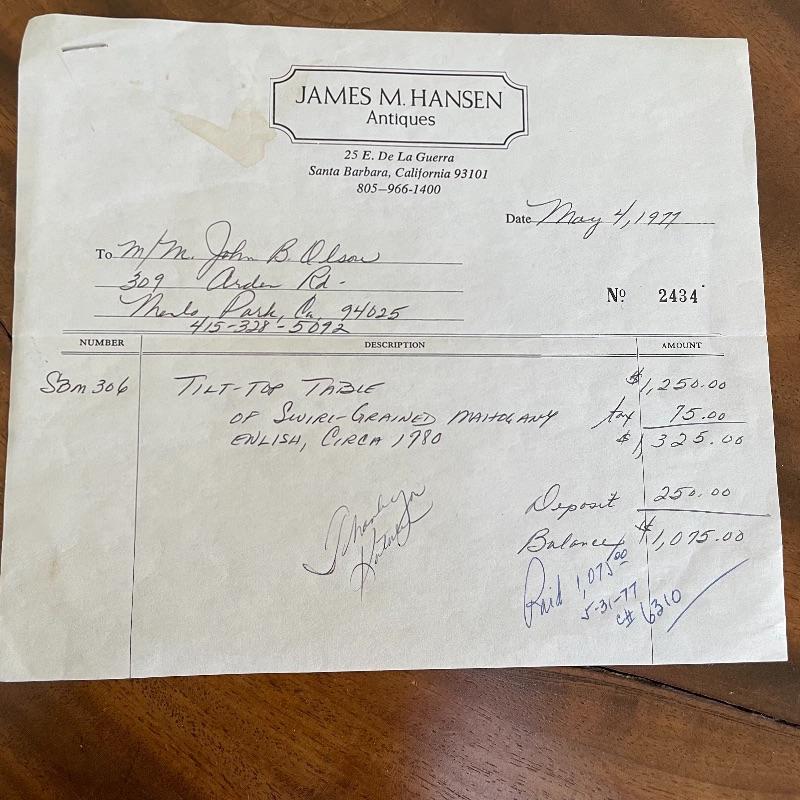 JAMES M. HANSEN
Antiques
25 E. De La Guerra
Santa Barbara, California 93101
805-966-1400
Date May 4, 1977
To M/M. John B. Olson
309 Arden Rd.
Menlo Park, Ca. 94025
415-328-5092
No 2434
NUMBER DESCRIPTION AMOUNT
SBM 306 TILT-TOP TABLE $1,250.00
OF SWIRL-GRAINED MAHOGANY tax 75.00
ENLISH, CIRCA 1780 $1,325.00
Deposit 250.00
Balance $1,075.00
Thank you
Paid 1,075.00
5-31-77
c# 6310